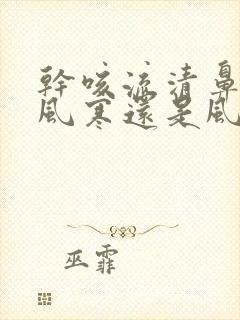 幹咳流清鼻
風寒還是風
巫霏